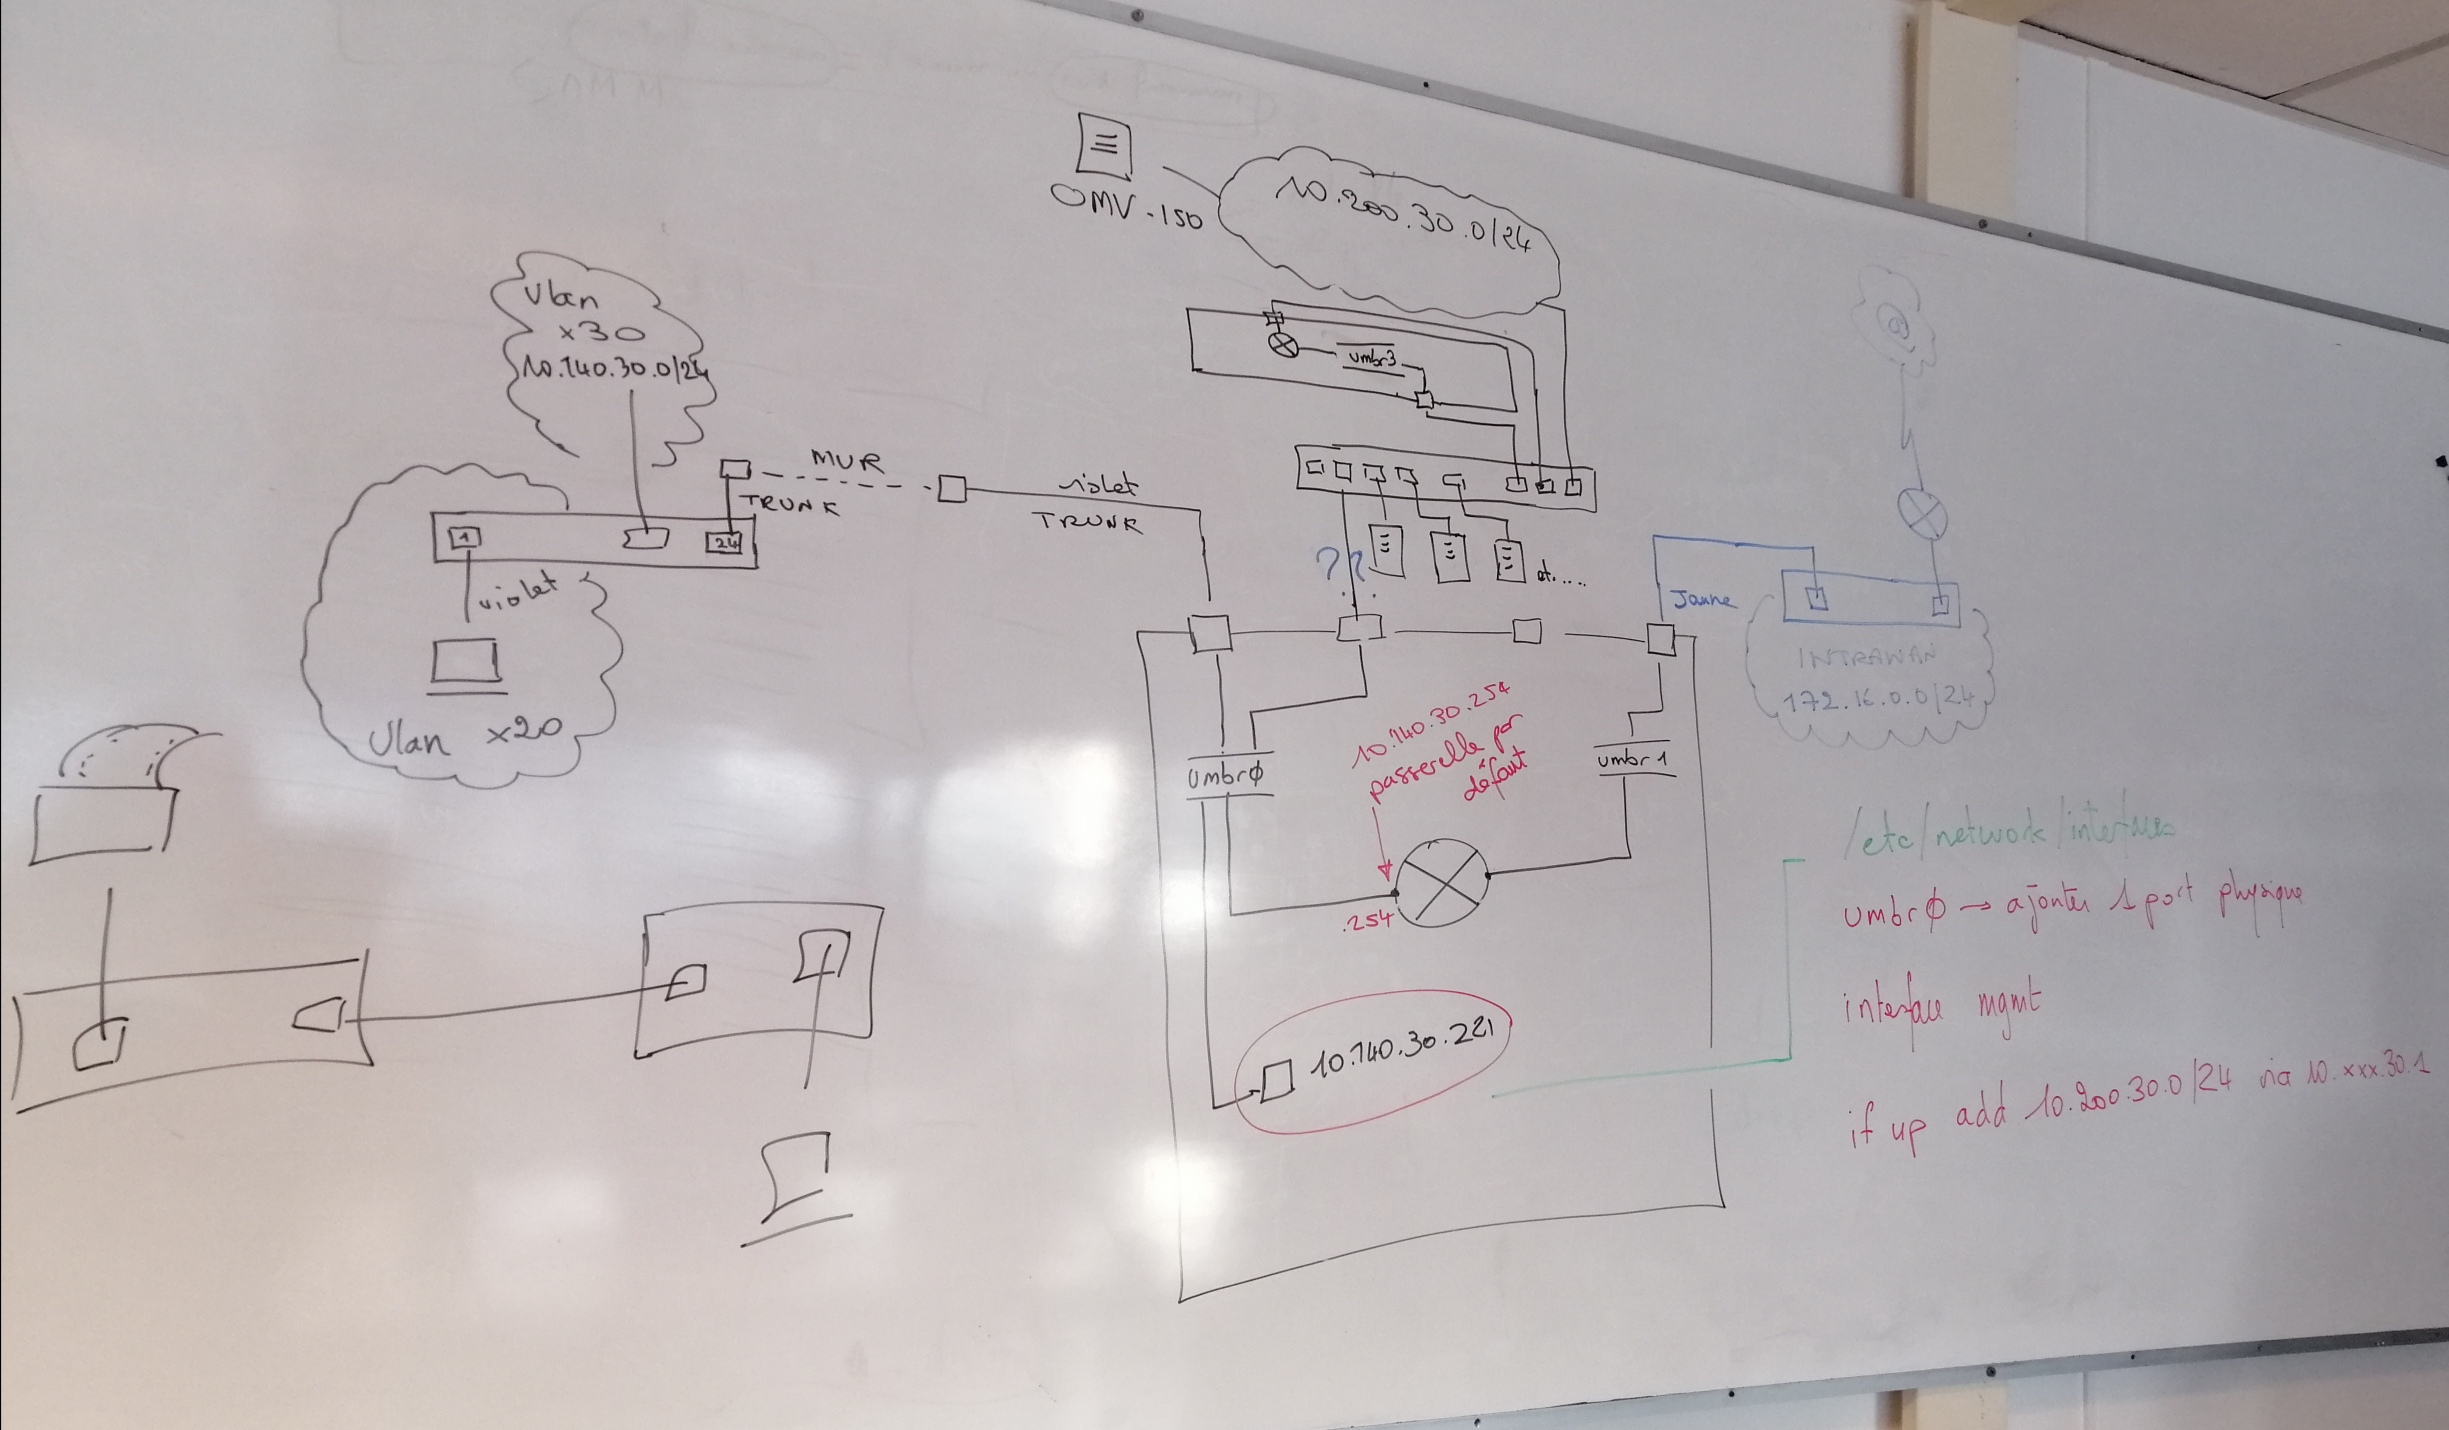 OMV-150
10.200.30.0/24
Vlan
x30
10.140.30.0/24
umbr3
MUR
TRUNK
violet
TRUNK
1
24
violet
??
et.....
Jaune
@
INTRAWAN
172.16.0.0/24
Vlan x20
10.140.30.254
passerelle par
défaut
Umbrφ
umbr1
.254
10.140.30.221
/etc/network/interfaces
Umbrφ → ajouter 1 port physique
interface mgmt
if up add 10.200.30.0/24 via 10.xxx.30.1